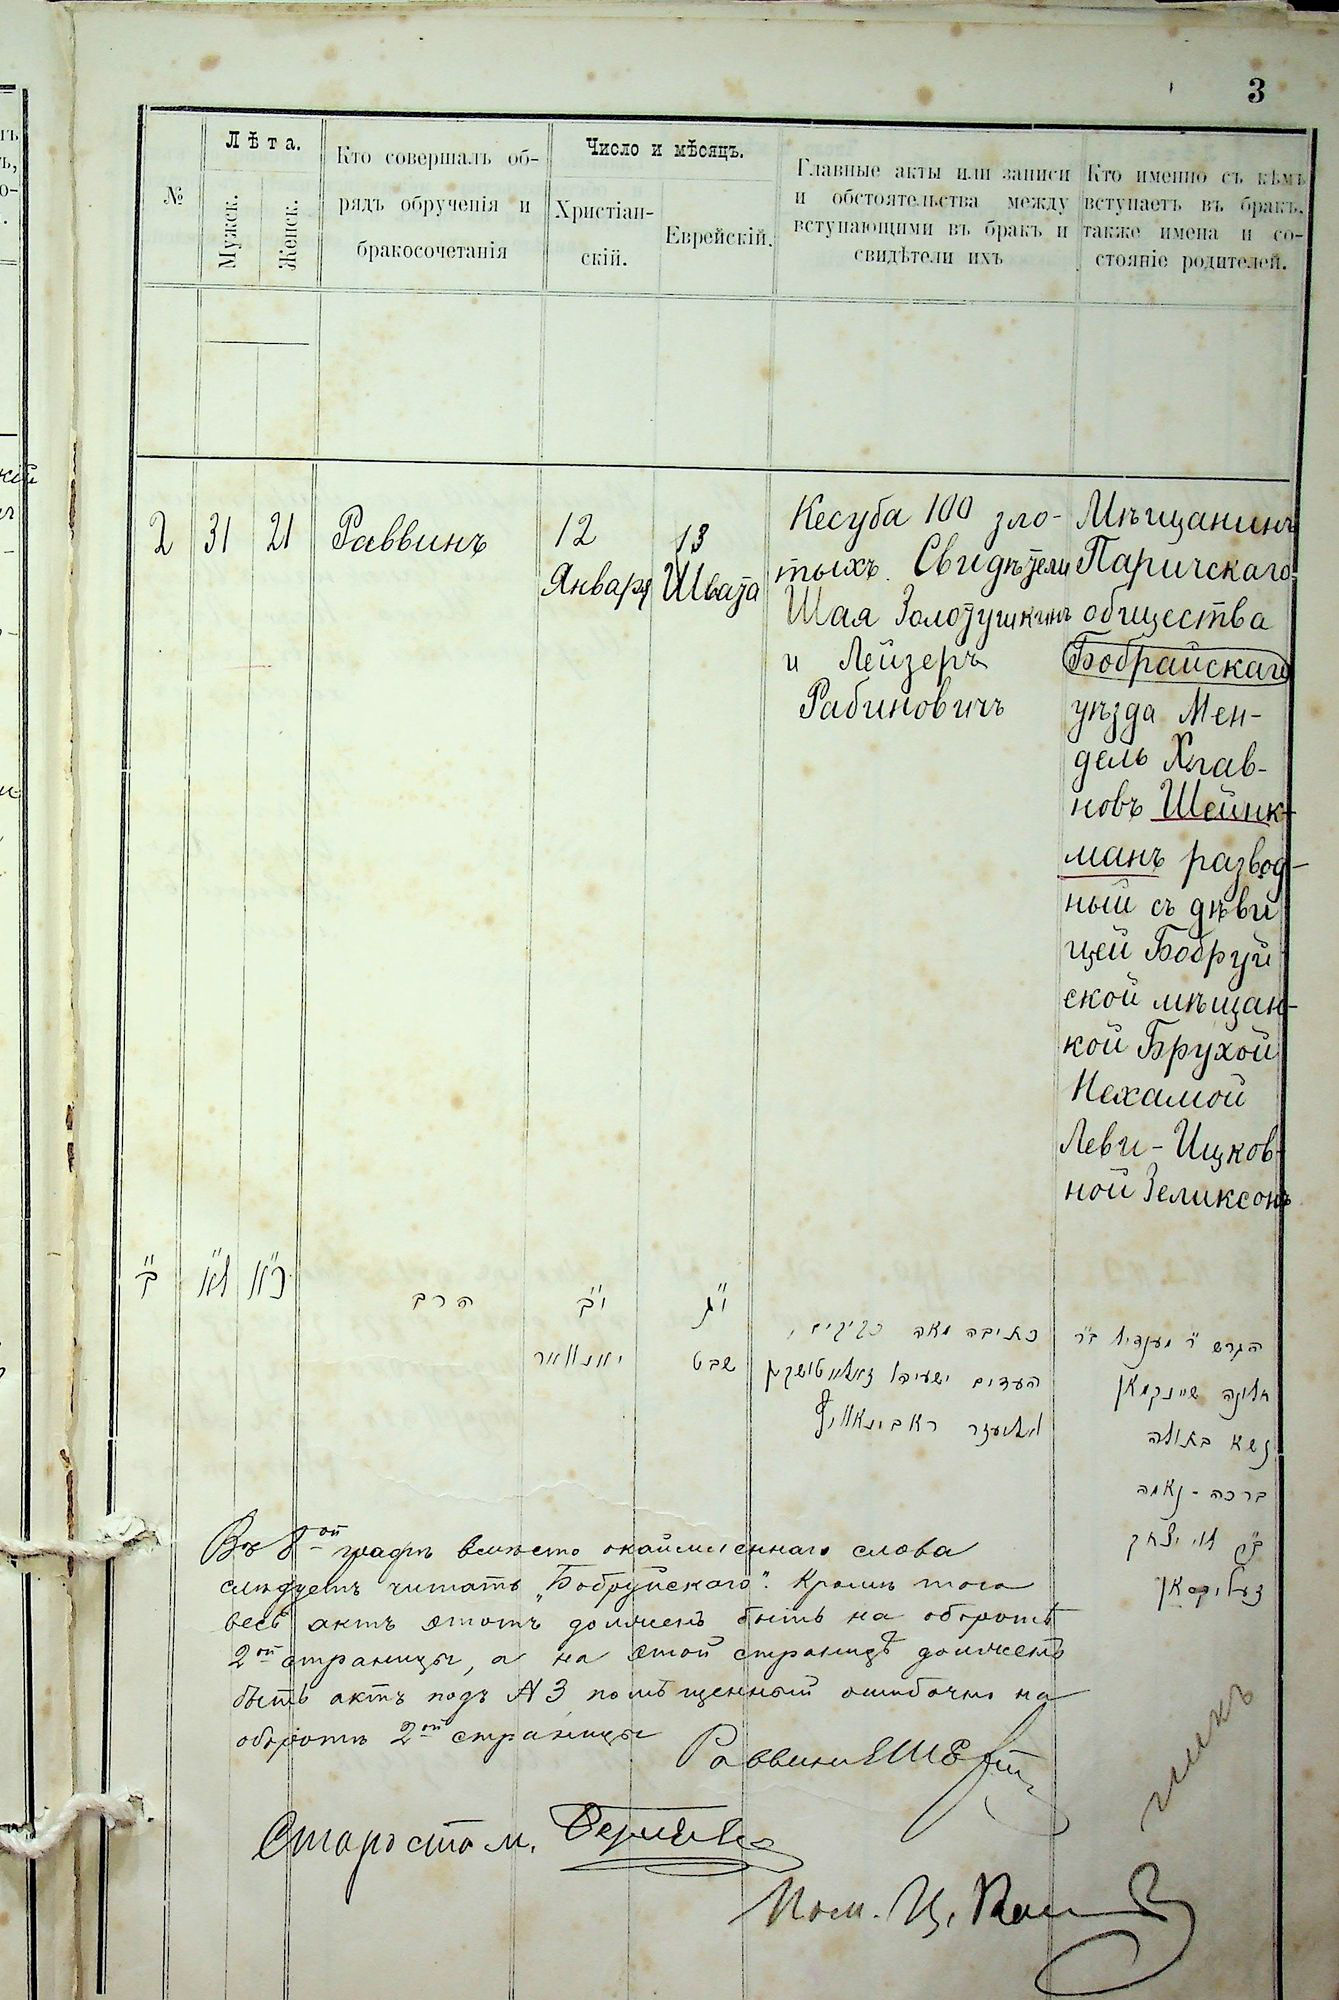 3
№
Лѣта.
Мужск.
Женск.
Кто совершалъ об-
рядъ обрученія и
бракосочетанія
Число и мѣсяцъ.
Христіан-
скій.
Еврейскій.
Главные акты или записи
и обстоятельства между
вступающими въ бракъ и
свидѣтели ихъ
Кто именно съ кѣмъ
вступаетъ въ бракъ,
также имена и со-
стояніе родителей.
2
31
21
Раввинъ
12
Января
13
Швата
Кесуба 100 зло-
тыхъ. Свидѣтели
Шая Золотушкинъ
и Лейзеръ
Рабиновичъ
Мѣщанинъ
Паричскаго
общества
Бобрайскаго
уѣзда Мен-
дель
новъ Шейнк-
манъ развод-
ный съ дѣви
цей Бобруй
ской мѣщан-
кой Брухой
Нехамой
Леви-Ицков-
ной Зеликсонъ
ב״
ל״א
כ״א
הרב
י״ב
יאנואר
י״ג
שבט
כתובה מאה
העדים ישעיהו
אליעזר ראבינאוויץ
הגרש ר' מענדיל ב״ר
שיינקמאן
נשא בתולה
ברכה-נחמה
לוי יצחק
זעליקסאן
Въ 8ой графѣ вмѣсто окаймленнаго слова
слѣдуетъ читать „Бобруйскаго“. Кромѣ того
весь актъ этотъ долженъ быть на оборотѣ
2ой страницы, а на этой страницѣ долженъ
быть актъ подъ № 3 помѣщенный ошибочно на
оборотѣ 2ой страницы
Раввинъ
Староста М.
Пом. Ц.